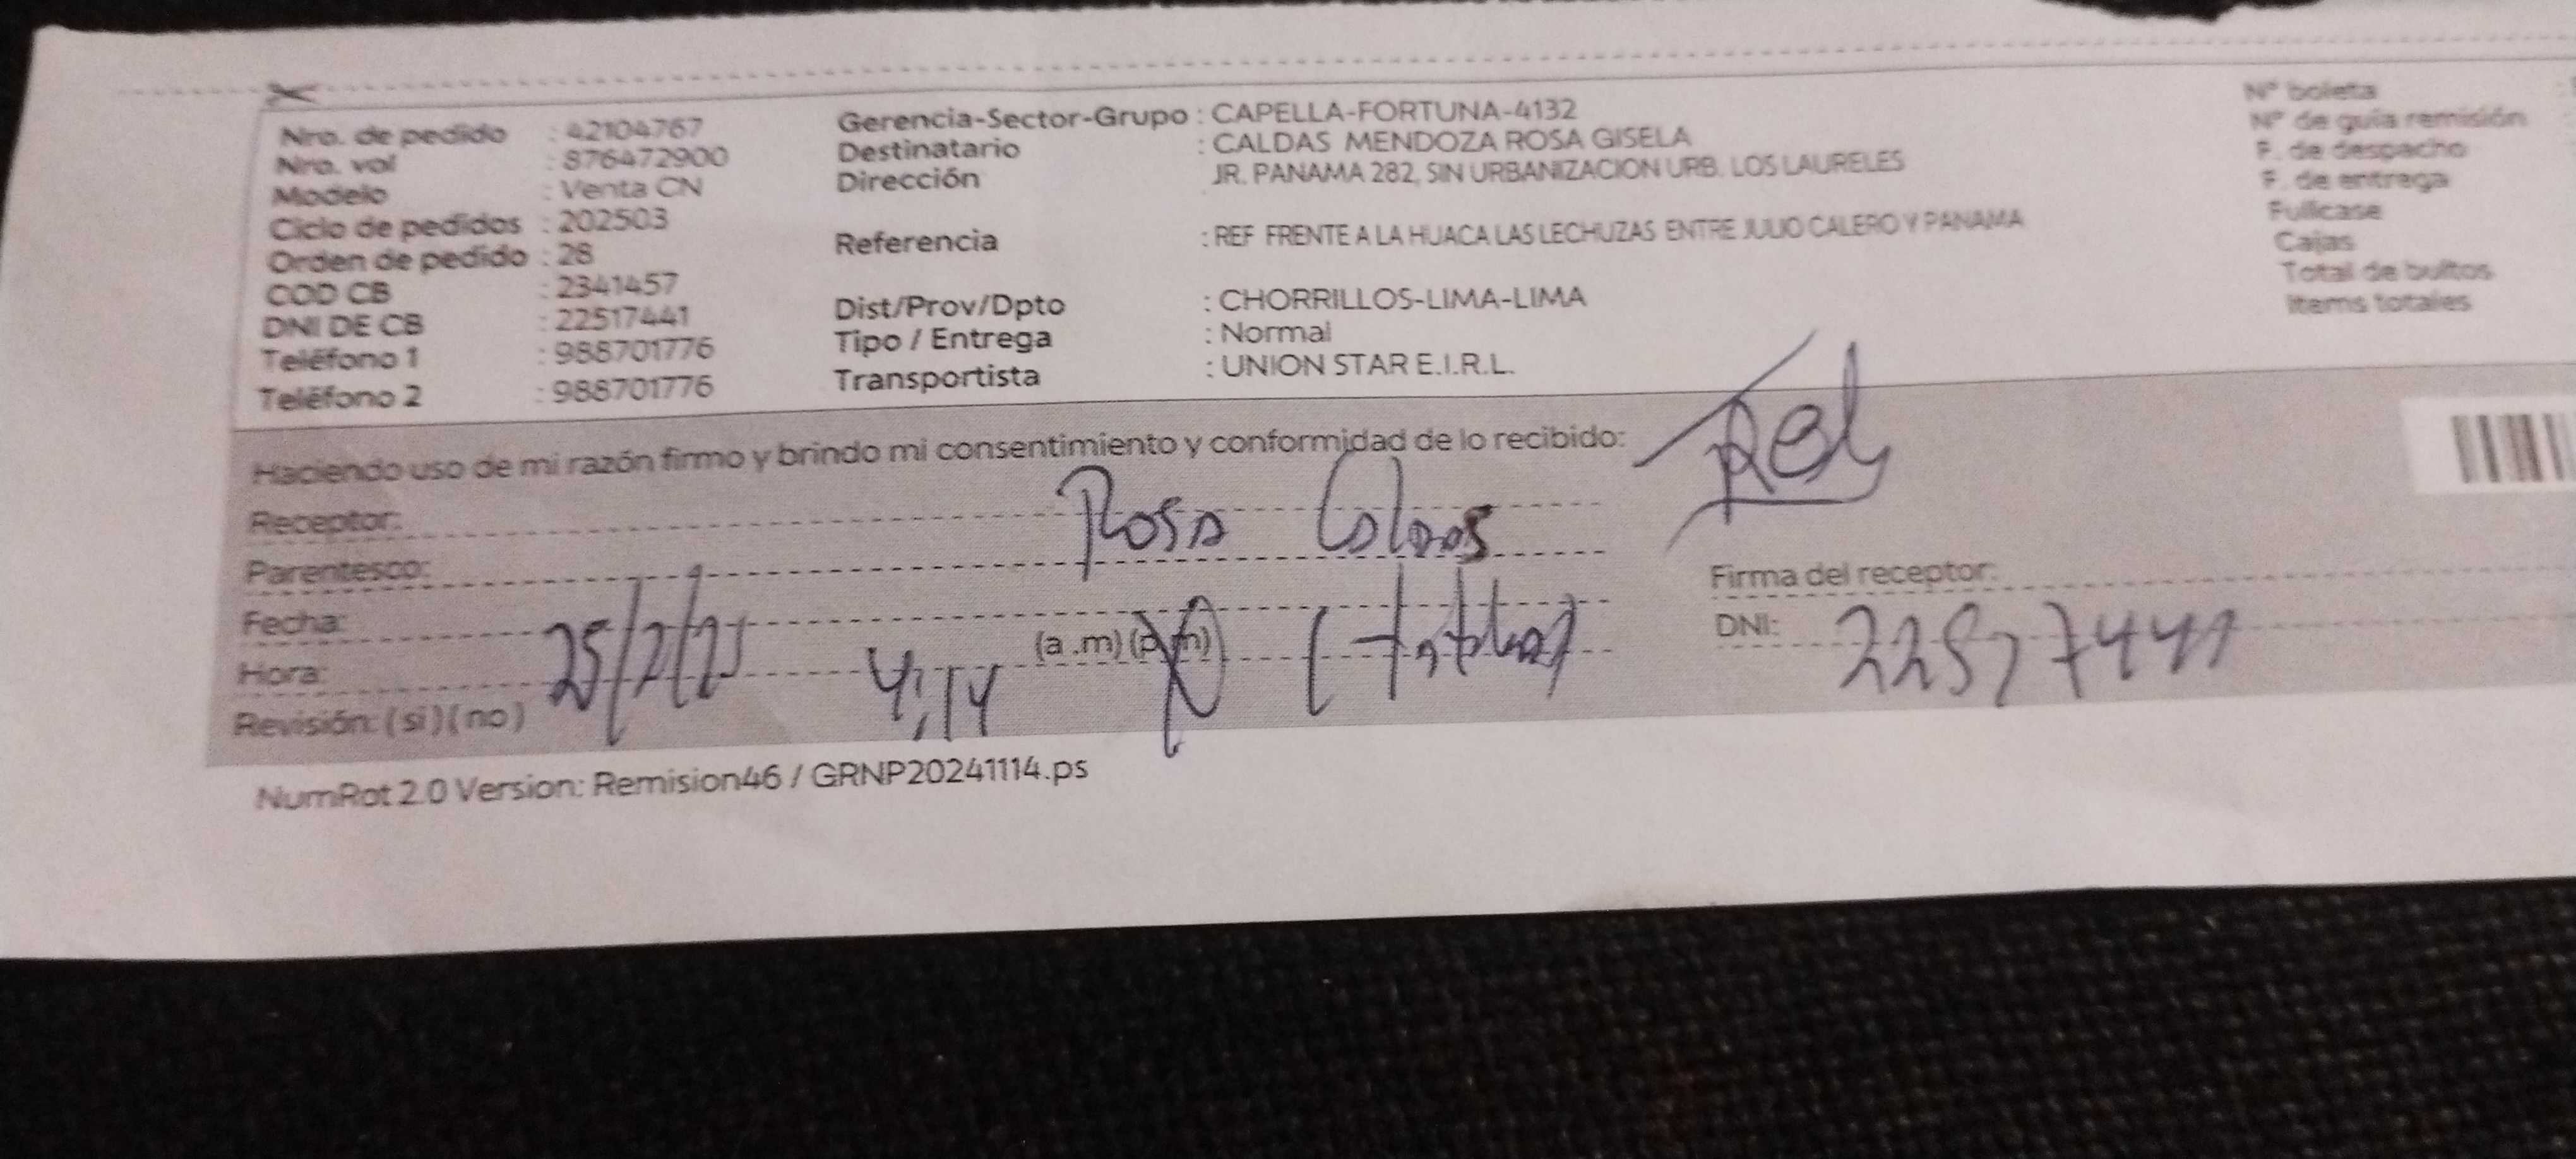 Nro. de pedido : 42104767
Nro. vol : 876472900
Modelo : Venta CN
Ciclo de pedidos : 202503
Orden de pedido : 28
COD CB : 2341457
DNI DE CB : 22517441
Teléfono 1 : 988701776
Teléfono 2 : 988701776
Gerencia-Sector-Grupo : CAPELLA-FORTUNA-4132
Destinatario : CALDAS MENDOZA ROSA GISELA
Dirección JR. PANAMA 282, SIN URBANIZACION URB. LOS LAURELES
Referencia : REF FRENTE A LA HUACA LAS LECHUZAS ENTRE JULIO CALERO Y PANAMA
Dist/Prov/Dpto : CHORRILLOS-LIMA-LIMA
Tipo / Entrega : Normal
Transportista : UNION STAR E.I.R.L.
N° boleta
N° de guía remisión
F. de despacho
F. de entrega
Fullcase
Cajas
Total de bultos
Items totales
Haciendo uso de mi razón firmo y brindo mi consentimiento y conformidad de lo recibido:
Receptor: Rosa Caldas
Parentesco:
Fecha: 25/2/25
Hora: 4:14 (a.m) (p.m) (titular)
Revisión: (si) (no)
Firma del receptor:
DNI: 22517441
NumRot 2.0 Version: Remision46 / GRNP20241114.ps